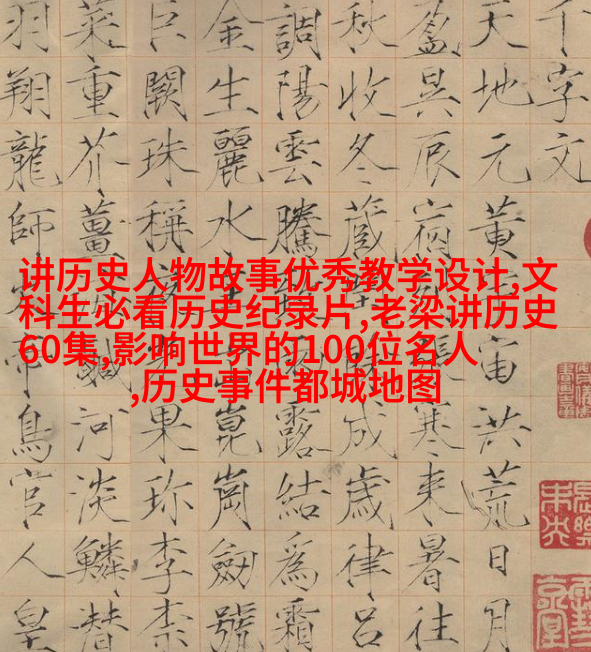 讲历史人物故事优秀教学设计,文
科生必看历史纪录片,老梁讲历史
60集,影响世界的100位名人
,历史事件都城地图
千字文
天地元黄宙洪荒日月
盈昃辰宿寒来暑往
秋收冬藏成歳律吕
調陽雲騰雨露結爲霜
金生麗水出崑崗劒號
巨闕珠稱夜光果珍李柰
菜重芥薑鹹河淡鱗潛
羽翔龍師火帝鳥官人皇